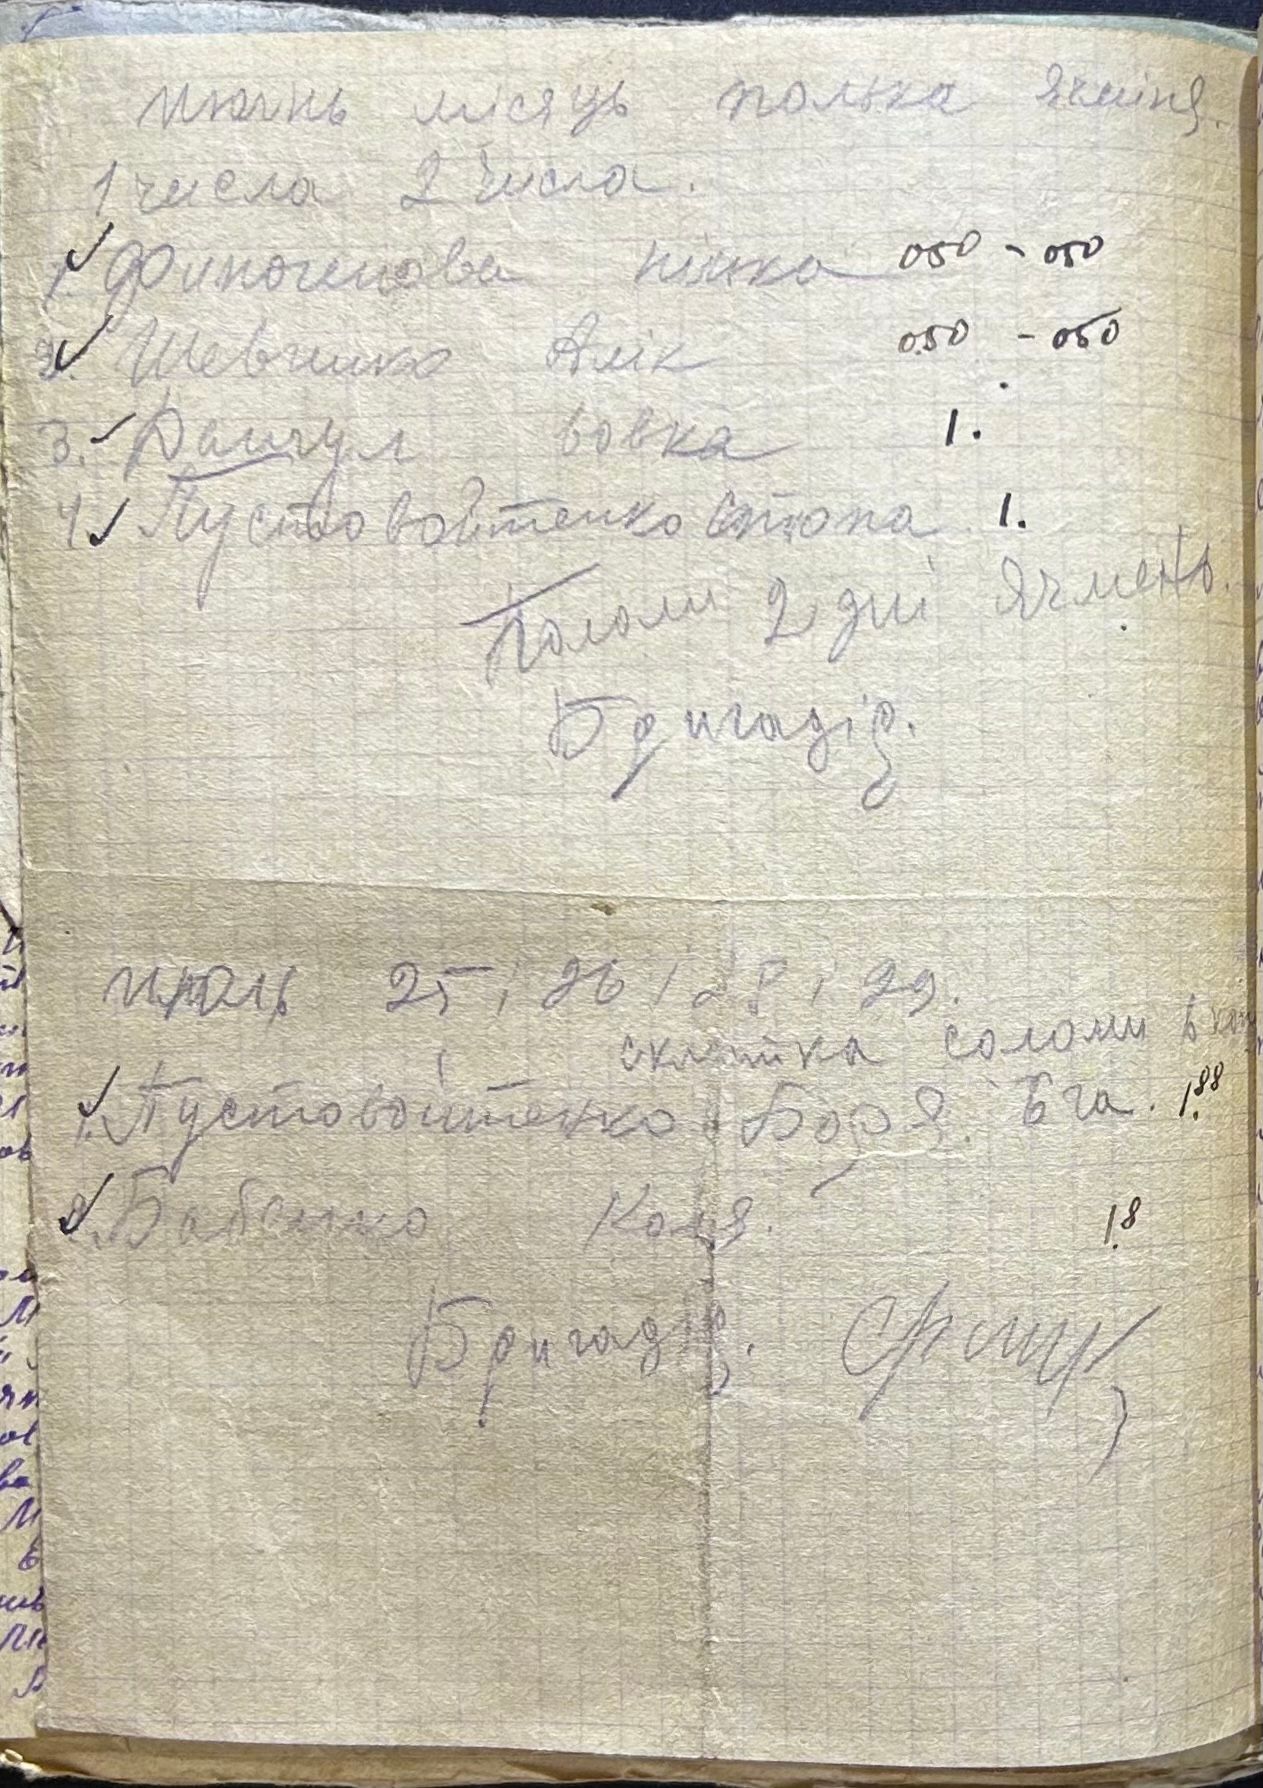 июнь місяць полька ячміня.
1 числа 2 числа.
1. нінка 050 - 050
2. Шевченко Алік 050 - 050
3. вовка 1.
4. Пустовойтенко 1.
Пололи 2 дні ячмень.
Бригадір.
июль 25, 26, 28, 29.
соломи в
1. Пустовойтенко Боря. 6 га. 1.88
2. Бабенко Коля. 1.8
Бригадір.